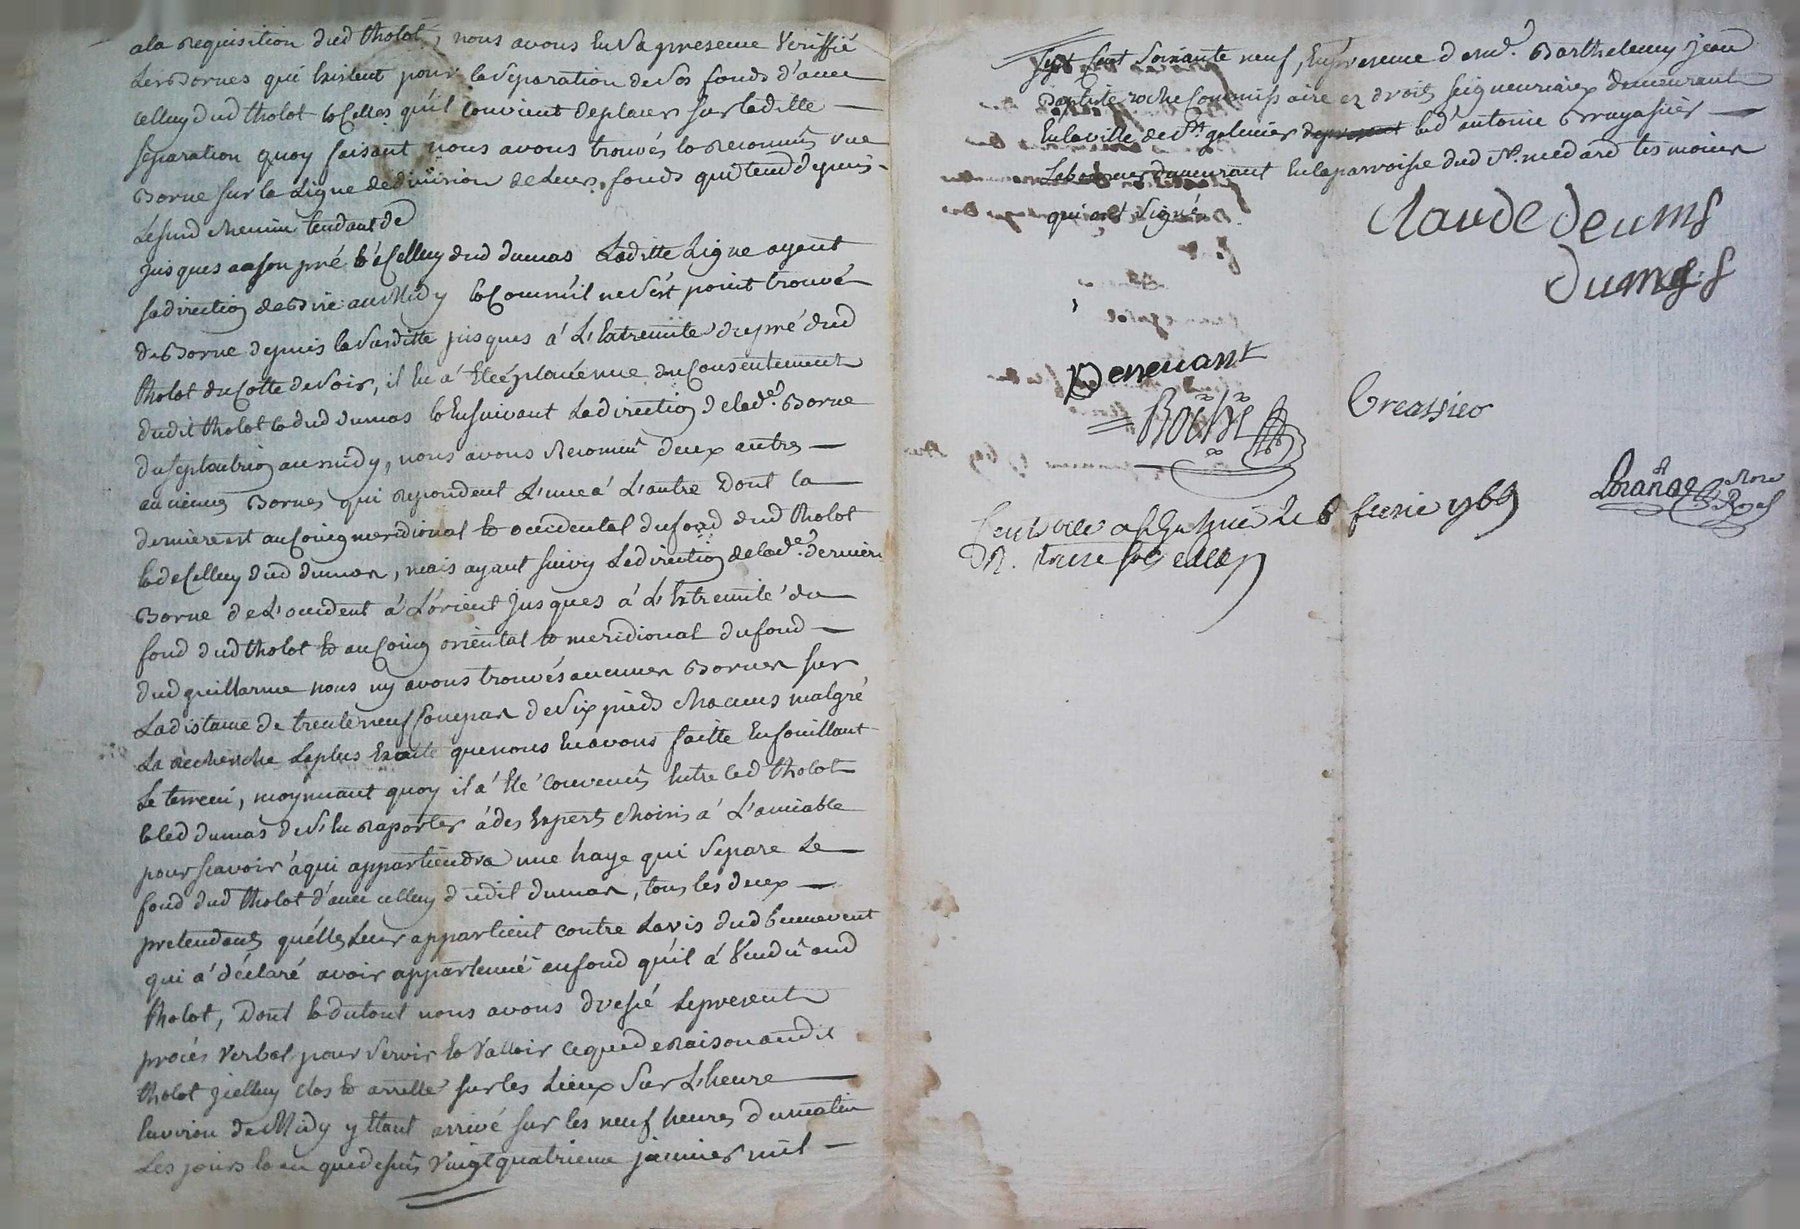 ala requisition dud tholot, nous avons en sa presence veriffié
les Bornes qui existent pour la separation de ses fonds d'avec
celluy dud tholot et celles qu'il convient de placer sur laditte
separation quoy faisant nous avons trouvés et reconnûs une
Borne sur la Ligne de division de leurs fonds qui tend depuis
le susd chemin tendant de
jusques a son pré et à celluy dud dumas Laditte Ligne ayant
sa direction de Bize au Midy et comm'il ne s'est point trouvé
de Borne depuis la susditte jusques á L'extremité du pré dud
tholot du Cotté de soir, il en á été placé une du Consentement
dudit tholot et dud dumas et en suivant La direction de lad.e Borne
du septentrion au midy, nous avons Reconnû deux autres
anciennes Bornes qui repondent L'une á L'autre Dont la
derniere est au Coing meridional et occidental du fond dud tholot
et de Celluy dud dumas, mais ayant suivy La direction de lad.e derniere
Borne de L'occident á L'orient jusques á L'extremité du
fond dud tholot et au Coing oriental et meridional du fond
dud guillarme nous ny avons trouvés aucunes Bornes sur
La distance de trente neuf Compas de six pieds chacuns malgré
La recherche La plus exacte que nous en avons faitte en fouillant
Le terrein, moyennant quoy il á été convenûs entre led tholot
et led dumas de s'en raporter á des experts choisis á L'amiable
pour scavoir á qui appartiendra une haye qui separe Le
fond dud tholot d'avec celluy dudit dumas, tous les deux
pretendants qu'elle Leur appartient contre Lavis dud benevent
qui á déclaré avoir appartenüe au fond qu'il á vendû aud
tholot, Dont et du tout nous avons dressé Le present
procés verbal pour servir et valloir ce que de Raison audit
tholot jcelluy clos et arretté sur les Lieux sur L'heure
environ de Midy y étant arrivé sur les neuf heures du matin
Les jours et an que dessus vingt quatrieme janvier mil
sept cent soixante neuf, En presence de m.e Barthelemy jean
Baptiste roche Commissaire ez droits seigneuriaux demeurant
en la ville de St galmier et d'antoine Bruyassier
demeurant en la parroisse dud St. medard tesmoins
qui ont signé
Claude deums
dumas
Benevant
Roche
Greassier
Controllé a St galmier le 6 fevrier 1769